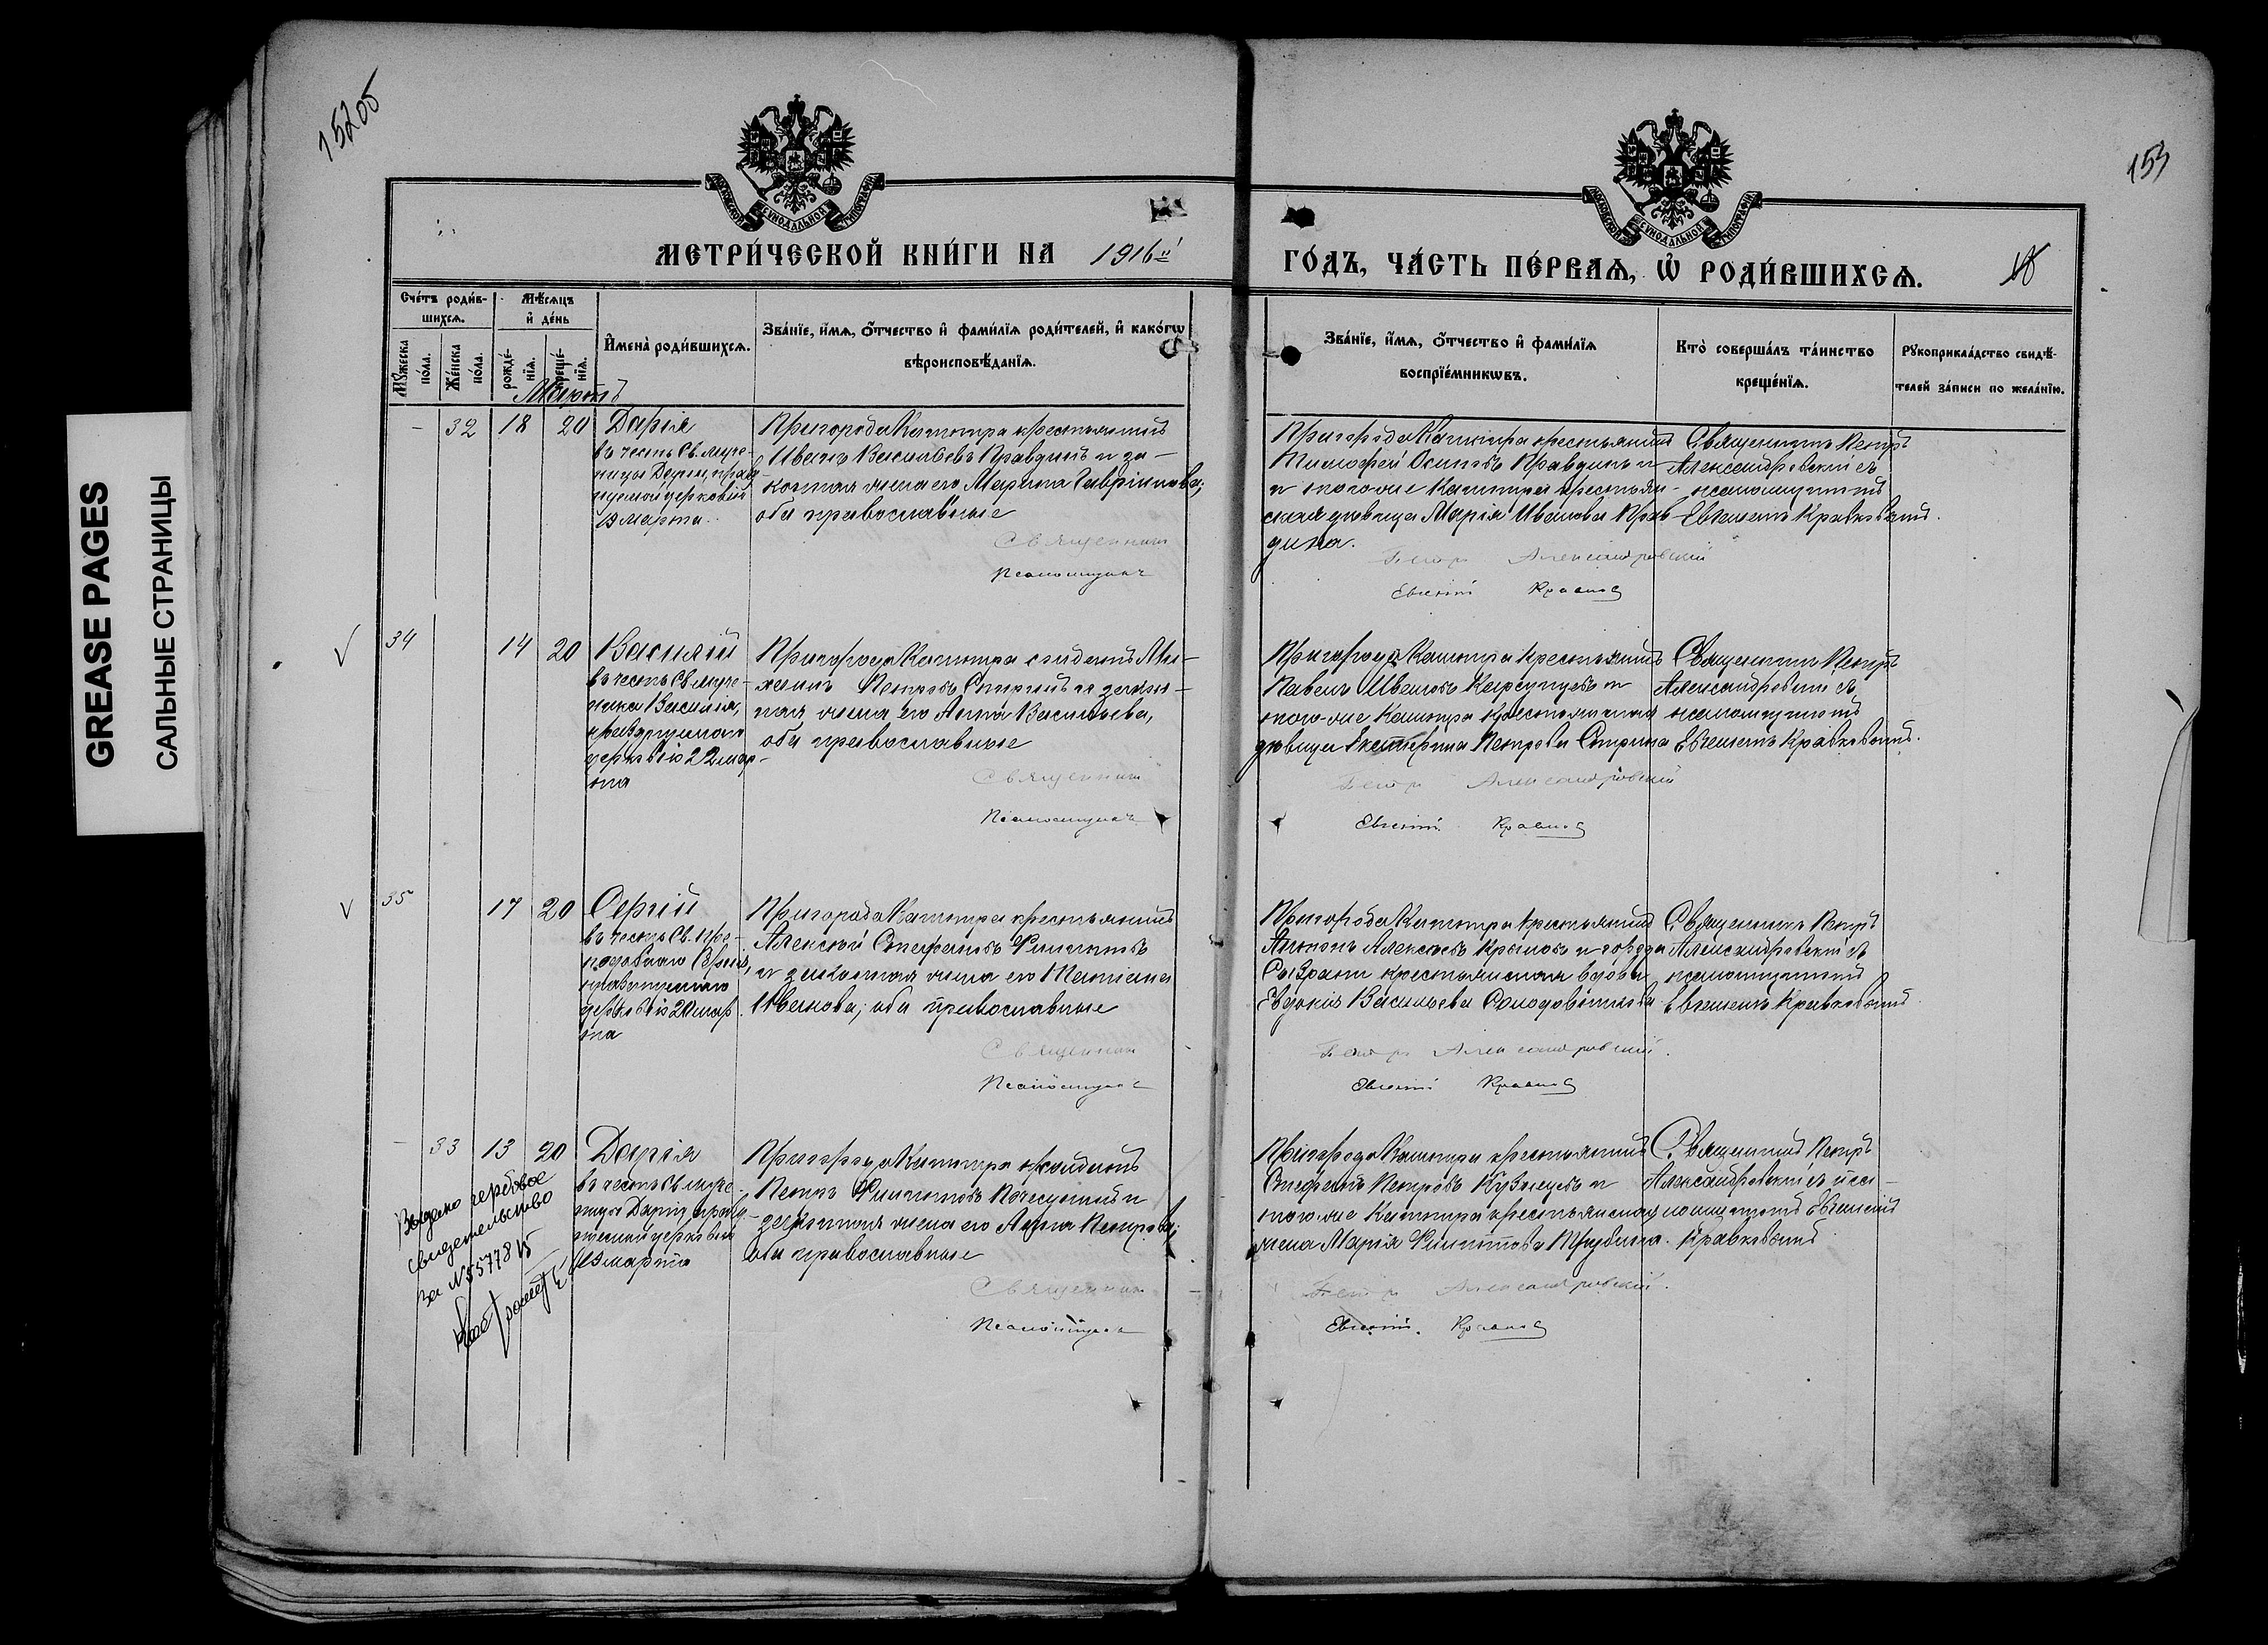 152об
153
МОСКОВСКОЙ СѴНОДАЛЬНОЙ ТИПОГРАФІИ
МОСКОВСКОЙ СѴНОДАЛЬНОЙ ТИПОГРАФІИ
МЕТРИ́ЧЕСКОЙ КНИ́ГИ НА 1916й
ГО́ДЪ, ЧА́СТЬ ПЕ́РВАѦ, Ѡ҆ РОДИ́ВШИХСѦ.
GREASE PAGES
САЛЬНЫЕ СТРАНИЦЫ
Сче́тъ роди́в-
шихсѧ.
Мꙋ́жеска по́ла.
Же́нска по́ла.
Мѣ́сѧцъ
и҆ де́нь
рожде́-
нїѧ.
креще́-
нїѧ.
И҆мена̀ роди́вшихсѧ.
Зва́нїе, и҆́мѧ, ѻ҆́тчество и҆ фами́лїѧ роди́телей, и҆ како́гѡ
вѣроисповѣ́данїѧ.
Зва́нїе, и҆́мѧ, ѻ҆́тчество и҆ фами́лїѧ
воспрїе́мникѡвъ.
Кто̀ соверша́лъ та́инство
креще́нїѧ.
Рꙋкоприкла́дство свидѣ́-
телей за́писи по жела́нїю.
Мартъ
- 32 18 20 Дарія
въ честь Св. муче-
ницы Даріи, празд-
нуемой церковію
19 марта.
Пригорода Кашпира крестьянинъ
Иванъ Васильевъ Правдинъ и за-
конная жена его Марина Гаврилова;
оба православные
Священникъ
Псаломщикъ
Пригорода Кашпира крестьянинъ
Тимофей Осиповъ Правдинъ и
того-же Кашпира крестьян-
ская дѣвица Марія Иванова Прав-
дина.
Петръ Александровскій
Евгеній Кравков
Священникъ Петръ
Александровскій съ
псаломщикомъ
Евгеніемъ Кравковымъ.
34 14 20 Василій
въ честь Св. муче-
ника Василія,
празднуемаго
церковію 22 мар-
та
Пригорода Кашпира
Петровъ и закон-
ная жена его Анна Васильева,
оба православные
Священникъ
Псаломщикъ
Пригорода Кашпира крестьянинъ
Павелъ Ивановъ и
того-же Кашпира крестьянская
дѣвица Екатерина Петрова
Петръ Александровскій
Евгеній Кравков
Священникъ Петръ
Александровскій съ
псаломщикомъ
Евгеніемъ Кравковымъ.
35 17 20 Сергій
въ честь Св. пре-
подобнаго Сергія,
празднуемаго
церковію 20 мар-
та
Пригорода Кашпира крестьянинъ
Алексѣй Филипповъ
и законная жена его Татіана
Иванова; оба православные
Священникъ
Псаломщикъ
Пригорода Кашпира крестьянинъ
Антонъ Алексѣевъ Крыловъ и города
Сызрани крестьянская вдова
Евдокія Васильева Солодовникова
Петръ Александровскій.
Евгеній Кравков
Священникъ Петръ
Александровскій съ
псаломщикомъ
Евгеніемъ Кравковымъ
- 33 13 20 Дарія
въ честь Св. муче-
ницы Даріи, празд-
нуемой церковію
19 марта
Выдано гербовое
свидетельство
за № 55778
Пригорода Кашпира
Петръ Филипповъ и
законная жена его Анна Петрова;
оба православные
Священникъ
Псаломщикъ
Пригорода Кашпира крестьянинъ
Стефанъ Петровъ Кузнецовъ и
того-же Кашпира крестьянская
жена Марія Филиппова Трубина.
Петръ Александровскій.
Евгеній. Кравков
Священникъ Петръ
Александровскій и пса-
ломщикомъ Евгеніемъ
Кравковымъ